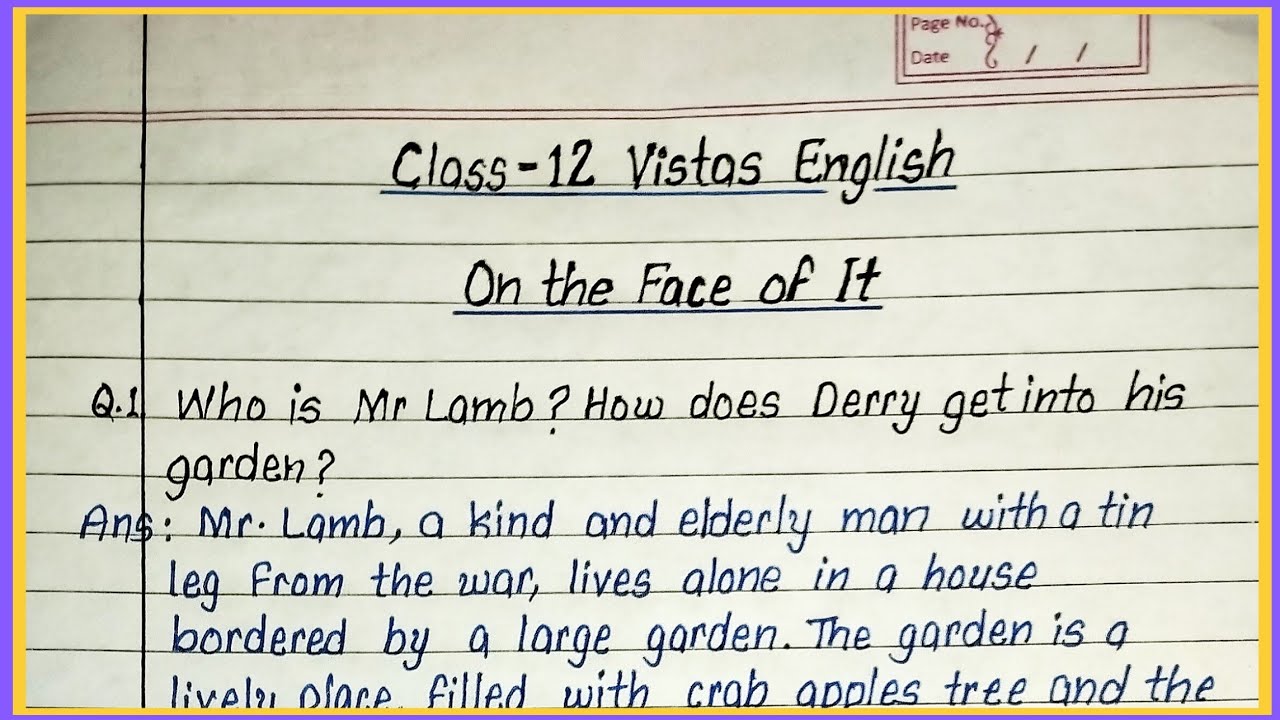 Page No.
Date / /
Class-12 Vistas English
On the Face of It
Q.1 Who is Mr Lamb? How does Derry get into his
garden?
Ans: Mr. Lamb, a kind and elderly man with a tin
leg from the war, lives alone in a house
bordered by a large garden. The garden is a
lively place, filled with crab apples tree and the